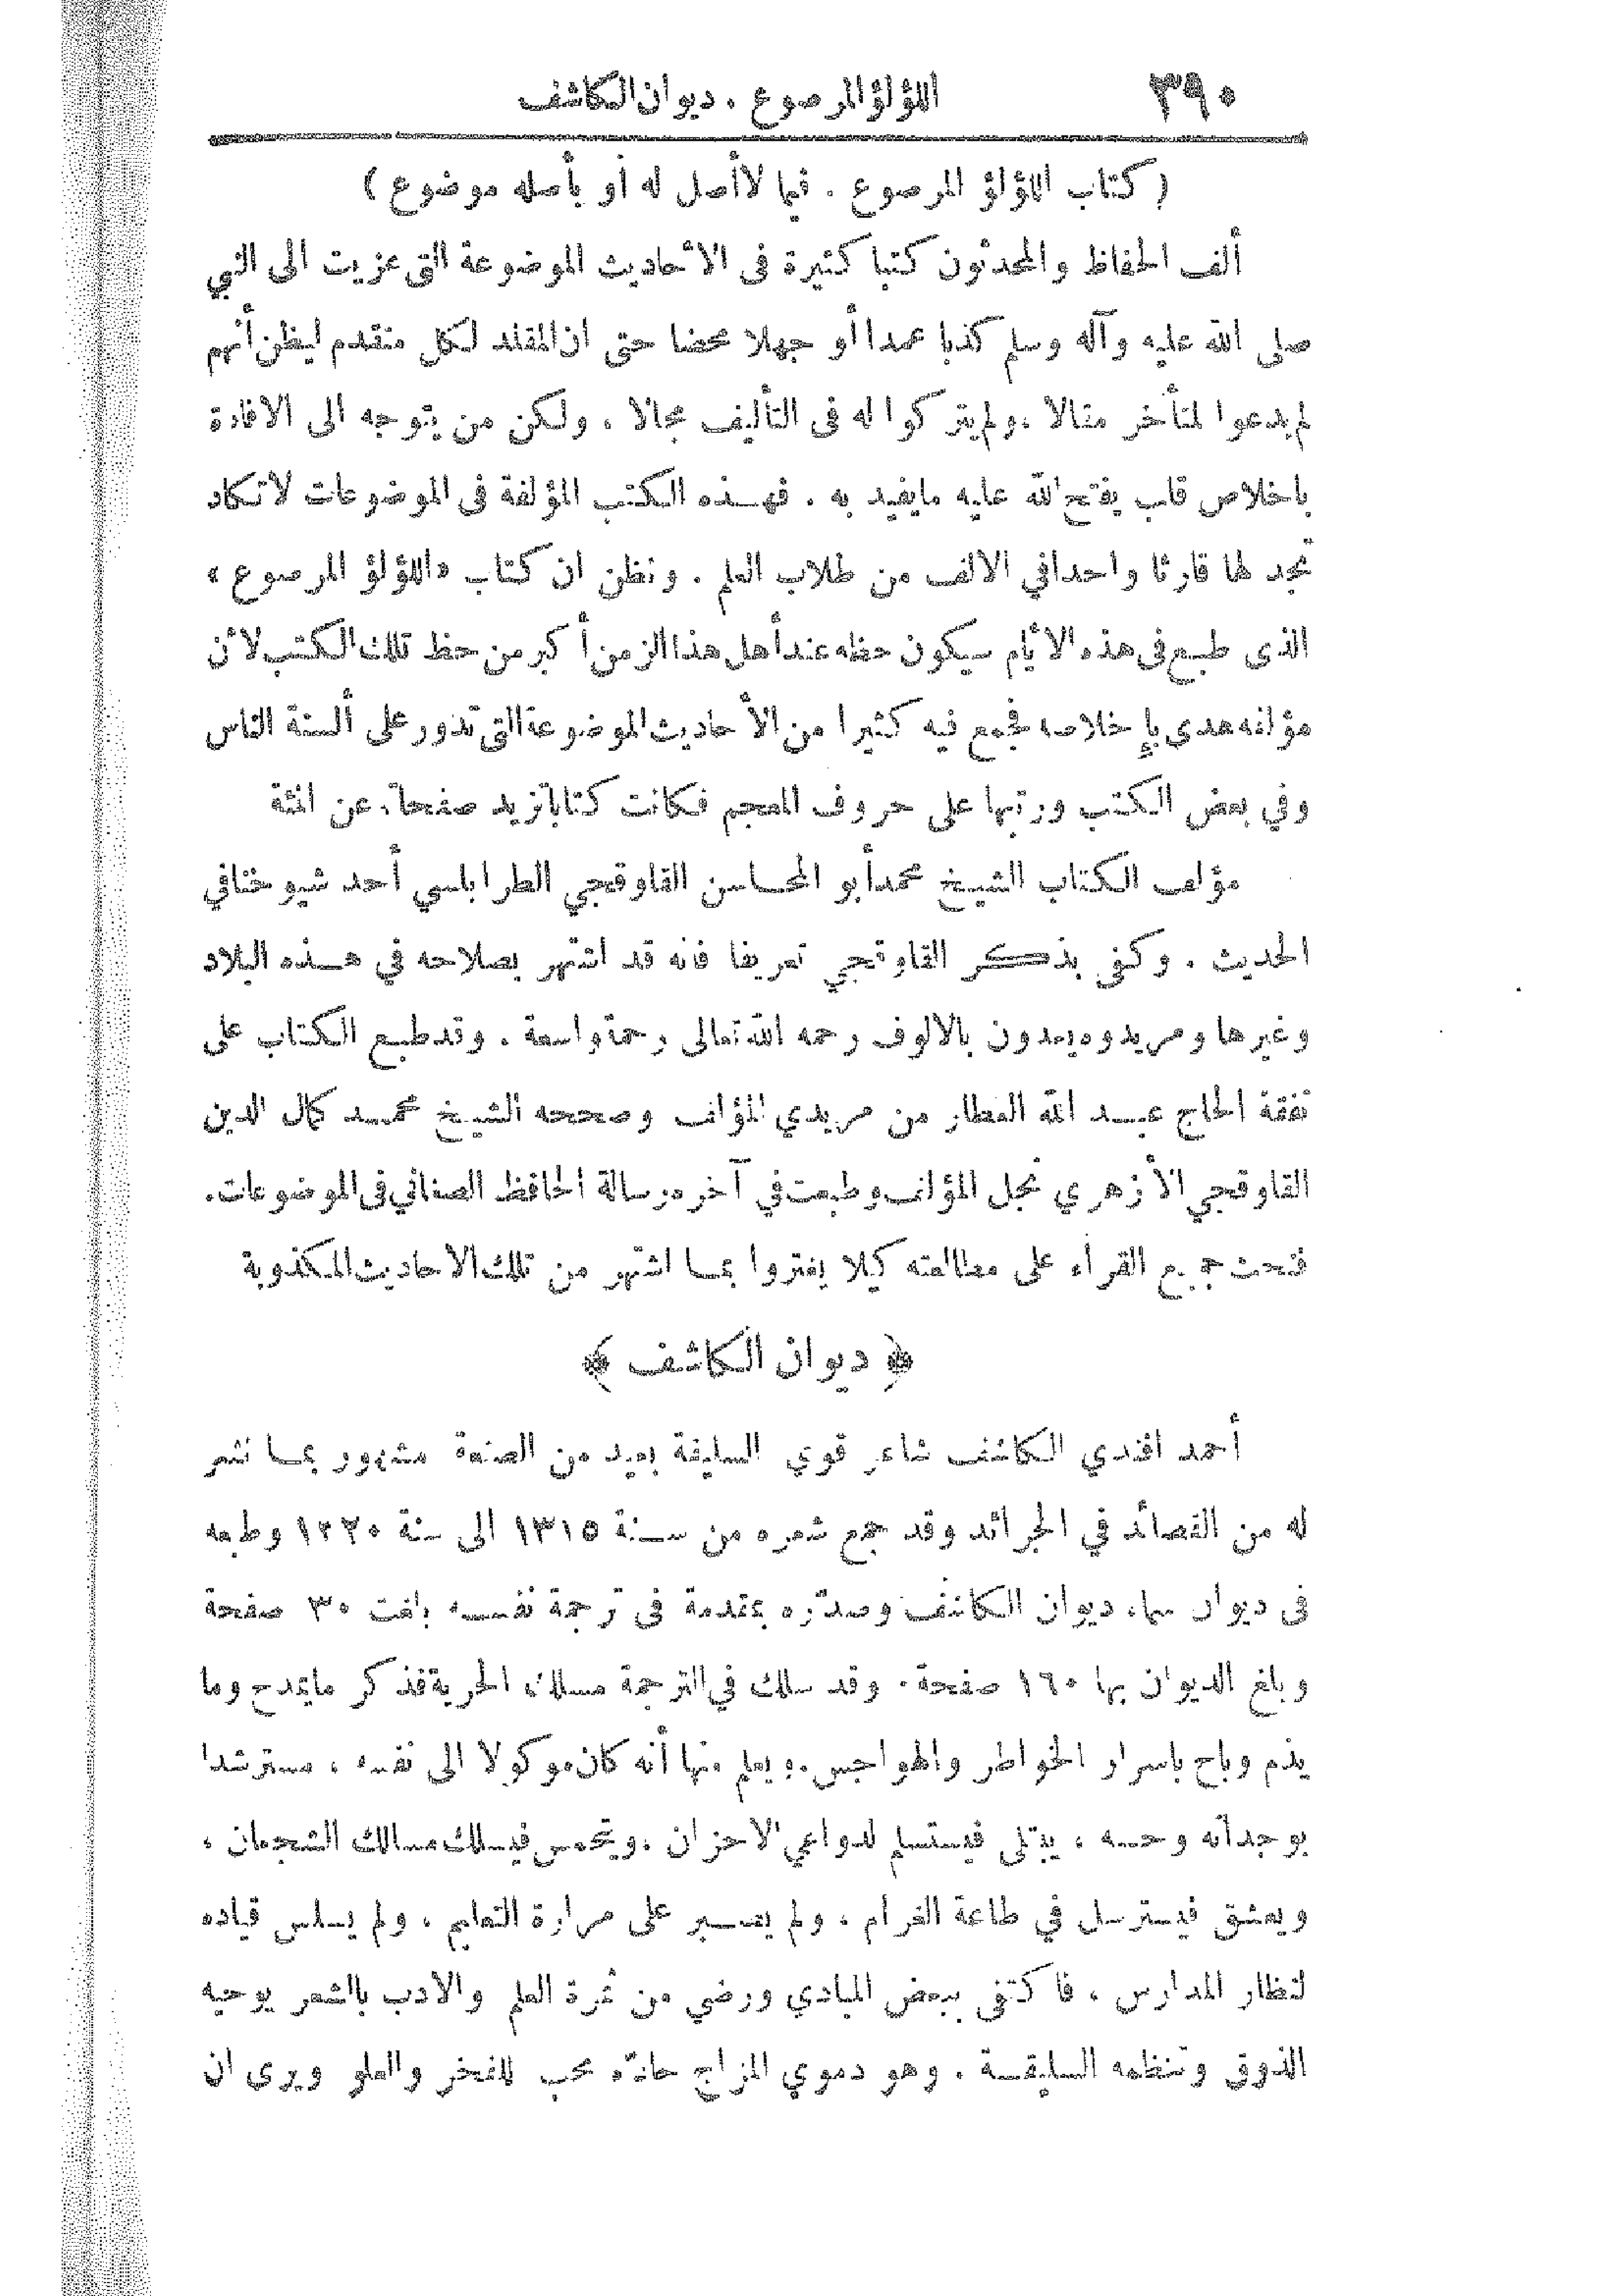 ٣٩٠ اللؤلؤ المرصوع . ديوان الكاشف
( كتاب اللؤلؤ المرصوع . فيما لا أصل له أو بأصله موضوع )
ألف الحفاظ والمحدثون كتبا كثيرة فى الأحاديث الموضوعة التى عزيت الى النبي
صلى الله عليه وآله وسلم كذبا عمدا أو جهلا محضا حتى ان المقلد لكل متقدم ليظن أنهم
لم يدعوا لمتأخر مقالا ، ولم يتركوا له فى التأليف مجالا ، ولكن من يتوجه الى الافادة
باخلاص قلب يفتح الله عليه مايفيد به . فهذه الكتب المؤلفة فى الموضوعات لاتكاد
تجد لها قارئا واحدا في الالف من طلاب العلم . ونظن ان كتاب «اللؤلؤ المرصوع»
الذى طبع فى هذه الأيام سيكون حظه عند أهل هذا الزمن أكبر من حظ تلك الكتب لأن
مؤلفه هدى بإخلاصه فجمع فيه كثيرا من الأحاديث الموضوعة التى تدور على ألسنة الناس
وفي بعض الكتب ورتبها على حروف المعجم فكانت كتابا تزيد صفحاته عن المئة
مؤلف الكتاب الشيخ محمد أبو المحاسن القاوقجي الطرابلسي أحد شيوخنا في
الحديث . وكفى بذكر القاوقجي تعريفا فانه قد اشتهر بصلاحه في هذه البلاد
وغيرها ومريدوه يعدون بالالوف رحمه الله تعالى رحمة واسعة . وقد طبع الكتاب على
نفقة الحاج عبد الله العطار من مريدي المؤلف وصححه الشيخ محمد كمال الدين
القاوقجي الأزهري نجل المؤلف وطبعت في آخره رسالة الحافظ الصغاني فى الموضوعات.
فنحث جميع القراء على مطالعته كيلا يغتروا بما اشتهر من تلك الاحاديث المكذوبة
﴿ ديوان الكاشف ﴾
أحمد افندي الكاشف شاعر قوي السليقة بعيد من الصنعة مشهور بما نشر
له من القصائد في الجرائد وقد جمع شعره من سنة ١٣١٥ الى سنة ١٣٢٠ وطبعه
فى ديوان سماه ديوان الكاشف وصدّره بمقدمة فى ترجمة نفسه بلغت ٣٠ صفحة
وبلغ الديوان بها ١٦٠ صفحة . وقد سلك في الترجمة مسلك الحرية فذكر مايمدح وما
يذم وباح باسرار الخواطر والهواجس . ويعلم منها أنه كان موكولا الى نفسه ، مسترشدا
بوجدانه وحسه ، يبتلى فيستسلم لدواعي الاحزان ، ويتحمس فيسلك مسالك الشجعان ،
ويعشق فيسترسل في طاعة الغرام ، ولم يصبر على مرارة التعليم ، ولم يسلس قياده
لنظار المدارس ، فاكتفى ببعض المبادي ورضي من ثمرة العلم والادب بالشعر يوحيه
الذوق وتنظمه السليقة . وهو دموي المزاج حادّه محب للفخر والعلو ويرى ان